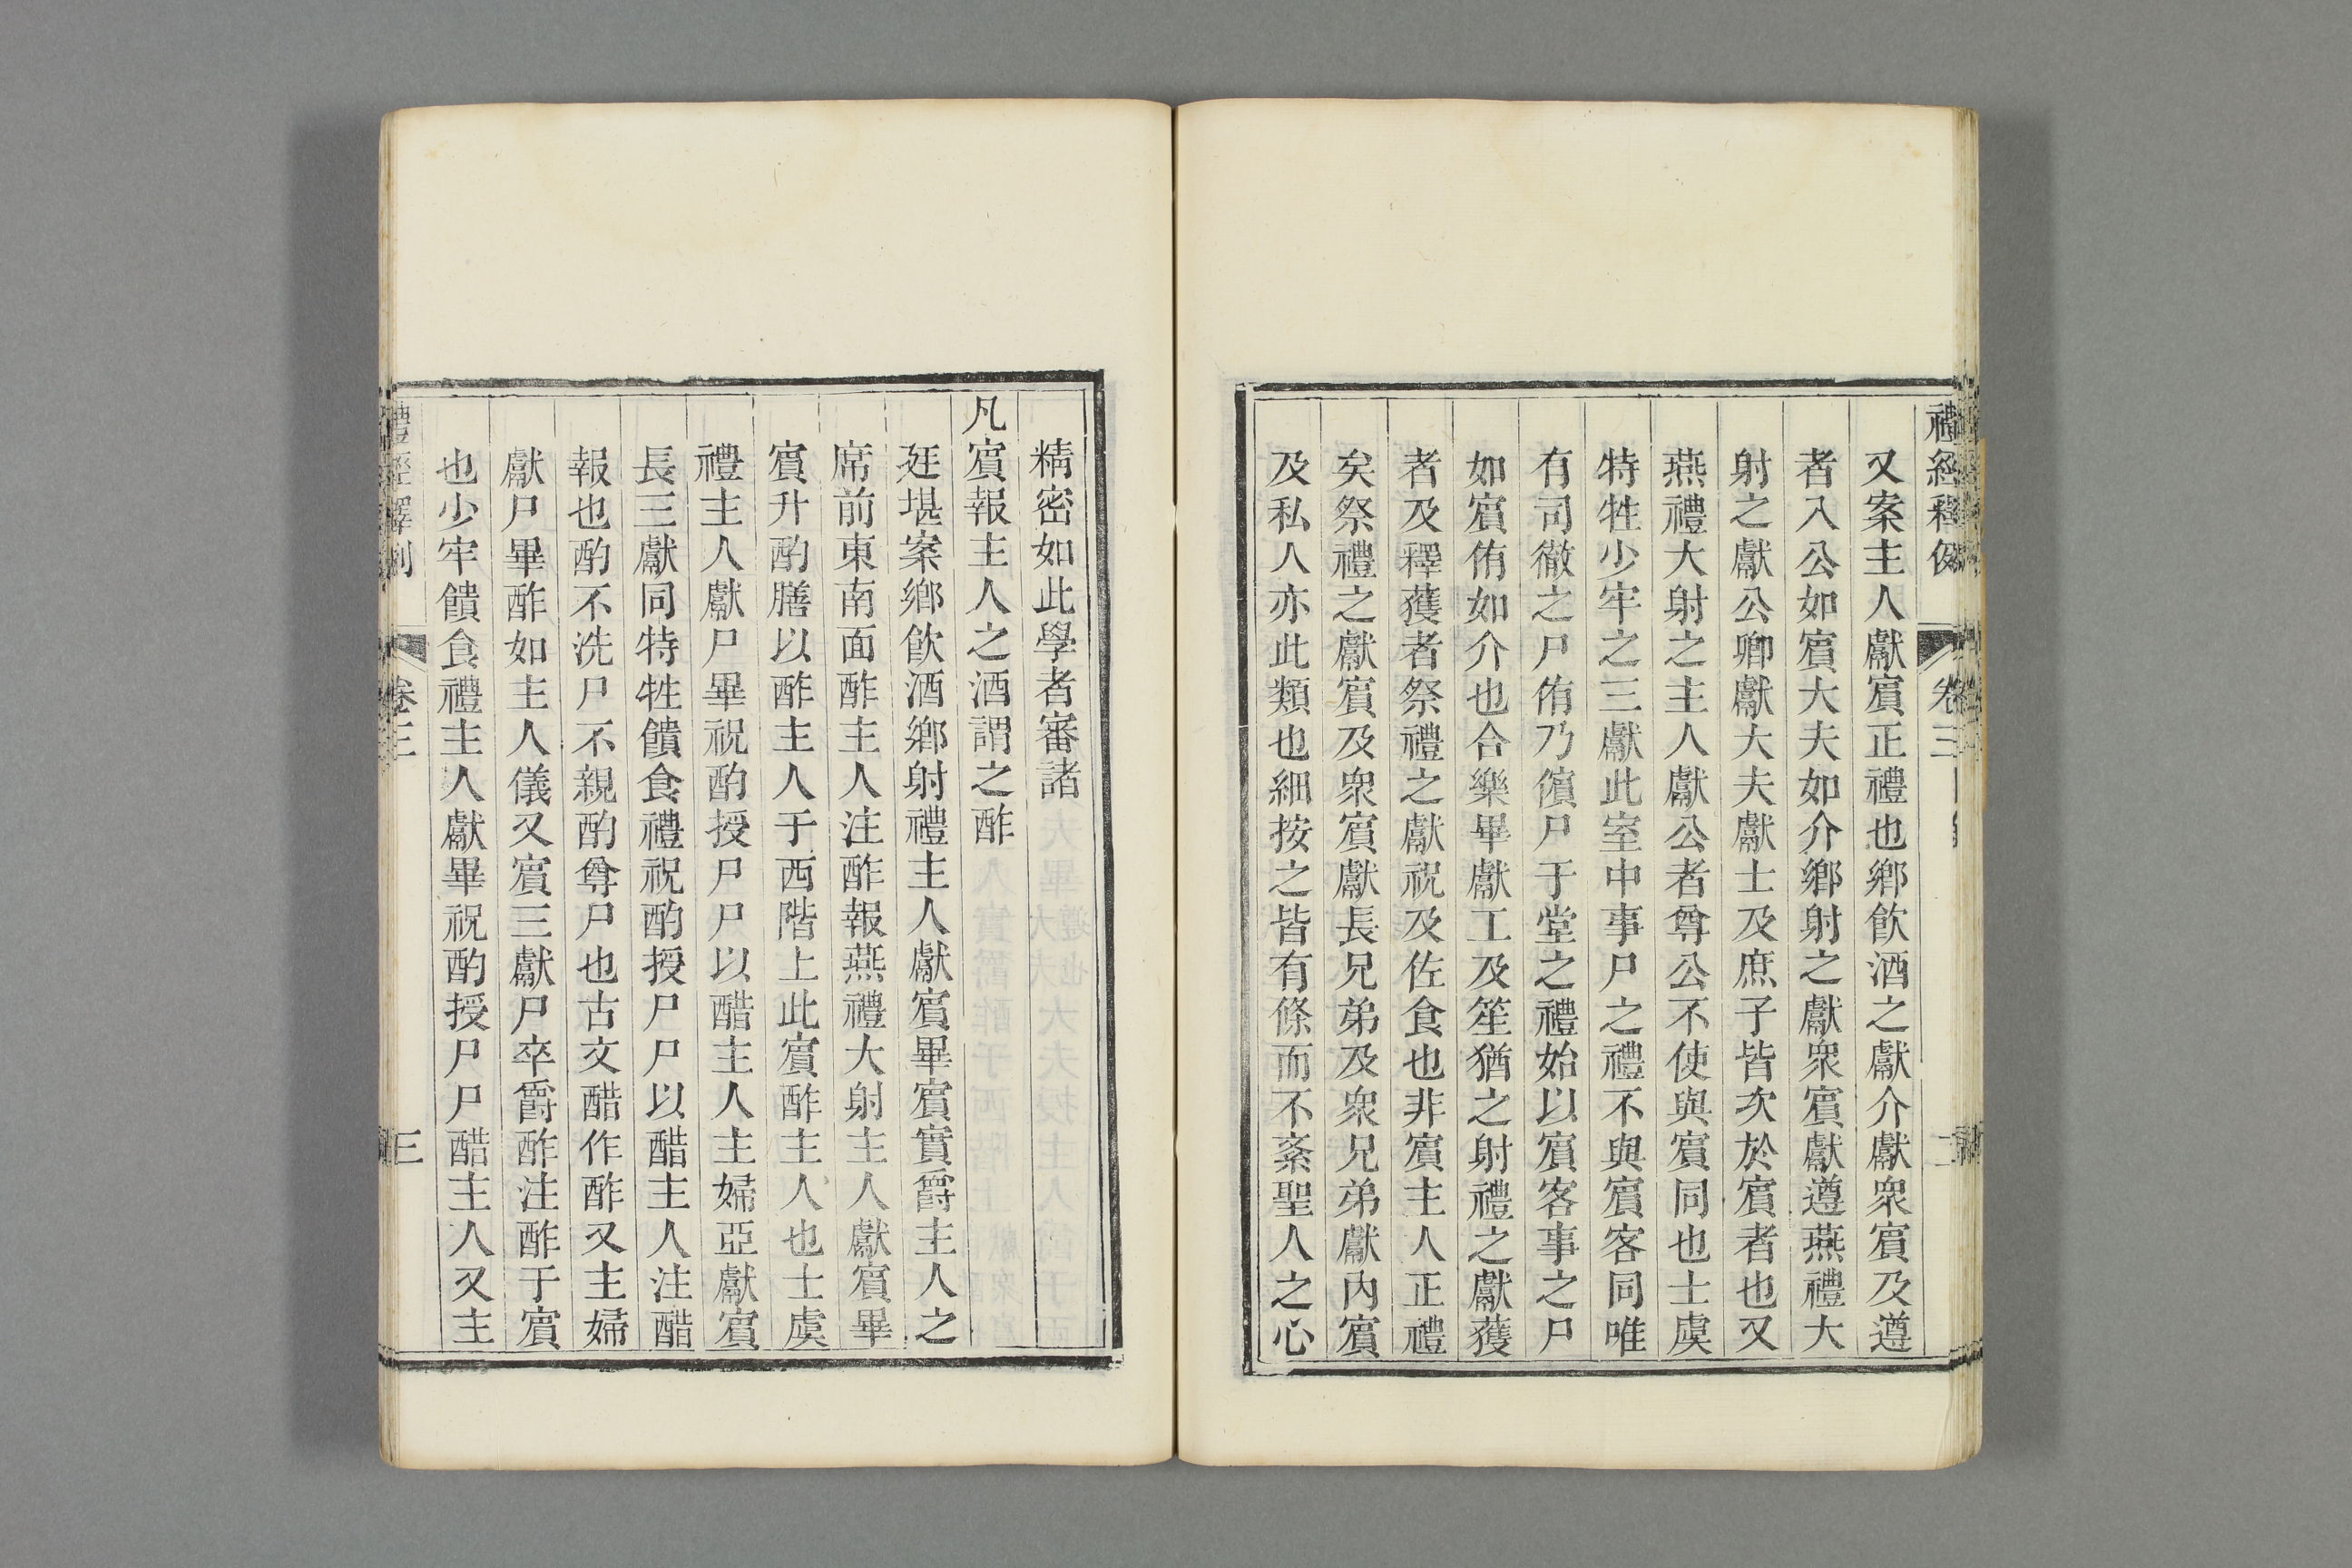 禮經釋例 卷三 二
又案主人獻賔正禮也鄉飲酒之獻介獻衆賔及遵
者入公如賔大夫如介鄉射之獻衆賔獻遵燕禮大
射之獻公卿獻大夫獻士及庶子皆次於賔者也又
燕禮大射之主人獻公者尊公不使與賔同也士虞
特牲少牢之三獻此室中事尸之禮不與賔客同唯
有司徹之尸侑乃儐尸于堂之禮始以賔客事之尸
如賔侑如介也合樂畢獻工及笙猶之射禮之獻獲
者及釋獲者祭禮之獻祝及佐食也非賔主人正禮
矣祭禮之獻賔及衆賔獻長兄弟及衆兄弟獻内賔
及私人亦此類也細按之皆有條而不紊聖人之心
精密如此學者審諸
凡賔報主人之酒謂之酢
廷堪案鄉飲酒鄉射禮主人獻賔畢賔實爵主人之
席前東南面酢主人注酢報燕禮大射主人獻賔畢
賔升酌膳以酢主人于西階上此賔酢主人也士虞
禮主人獻尸畢祝酌授尸尸以醋主人主婦亞獻賔
長三獻同特牲饋食禮祝酌授尸尸以醋主人注醋
報也酌不洗尸不親酌尊尸也古文醋作酢又主婦
獻尸畢酢如主人儀又賔三獻尸卒爵酢注酢于賔
也少牢饋食禮主人獻畢祝酌授尸尸醋主人又主
禮經釋例 卷三 三